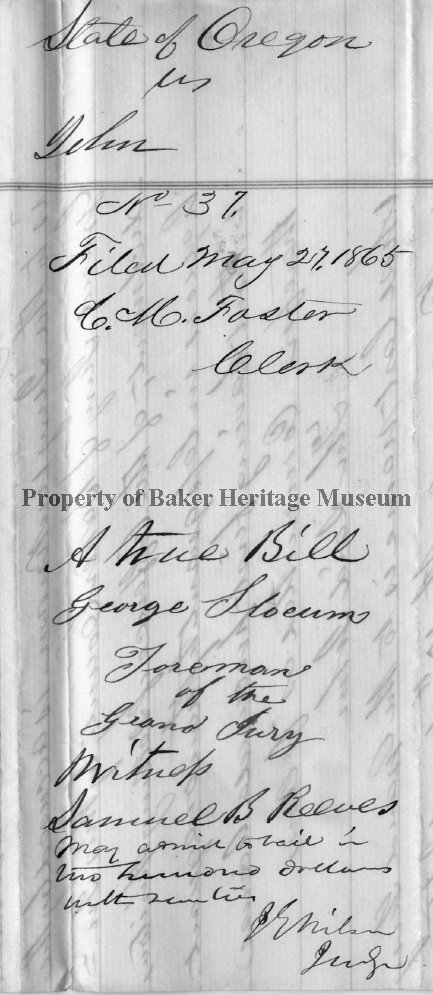 State of Oregon
vs
John
No 37.
Filed May 27, 1865
C. M. Foster
Clerk
Property of Baker Heritage Museum
A true Bill
George Slocum
Foreman
of the
Grand Jury
Witness
Samuel B Reeves
May admit to bail in
two hundred dollars
with sureties
J G Wilson
Judge